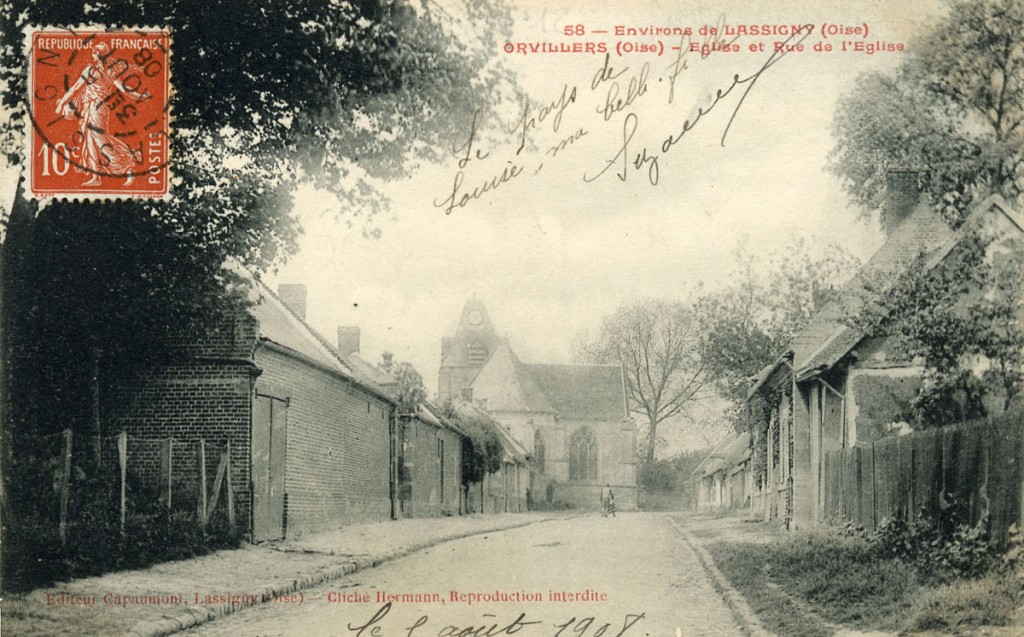 58 – Environs de LASSIGNY (Oise)
ORVILLERS (Oise) – Eglise et Rue de l'Eglise
REPUBLIQUE FRANÇAISE
10c POSTES
AOUT
08
Le pays de
Louise, ma belle-fille
Suzanne
Editeur Capaumont, Lassigny (Oise) – Cliché Hermann, Reproduction interdite
le août 1908